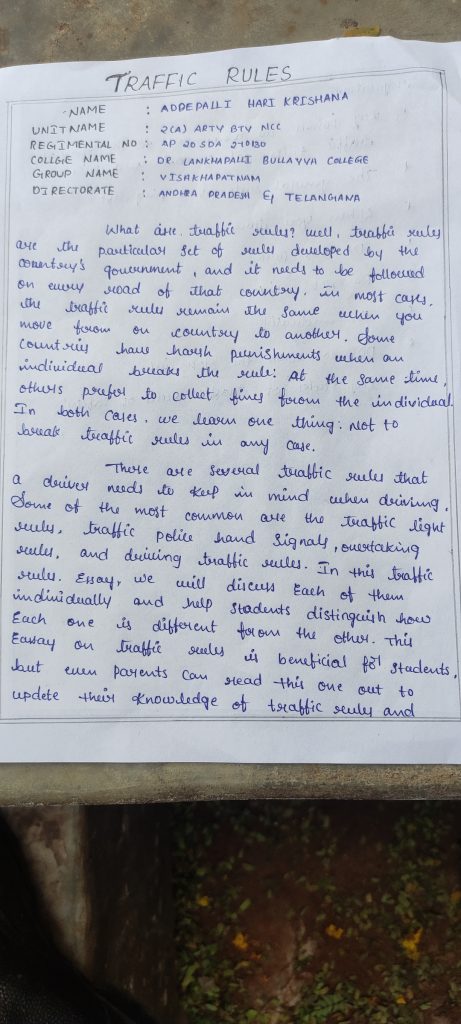 TRAFFIC RULES
NAME : ADDEPALLI HARI KRISHANA
UNIT NAME : 2(A) ARTY BTY NCC
REGIMENTAL NO : AP 20 SDA 210130
COLLGE NAME : DR. LANKHAPALLI BULLAYYA COLLEGE
GROUP NAME : VISAKHAPATNAM
DIRECTORATE : ANDHRA PRADESH & TELANGANA
What are traffic rules? well, traffic rules
are the particular set of rules developed by the
country's government, and it needs to be followed
on every road of that country. in most cases,
the traffic rules remain the same when you
move from on country to another. Some
countries have harsh punishments when an
individual breaks the rule. At the same time,
others prefer to collect fines from the individual.
In both cases, we learn one thing: Not to
break traffic rules in any case.
There are several traffic rules that
a driver needs to keep in mind when driving.
Some of the most common are the traffic light
rules, traffic police hand signals, overtaking
rules, and driving traffic rules. In this traffic
rules. Essay, we will discuss Each of them
individually and help students distinguish how
Each one is different from the other. This
Eassay on traffic rules is beneficial for students,
but even parents can read this one out to
update their knowledge of traffic rules and